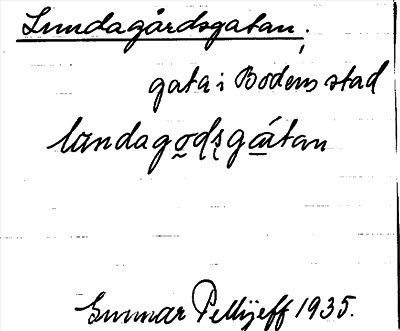 Lundagårdsgatan,
gata i Bodens stad
lundagodsgátan
Gunnar Pellijeff 1935.